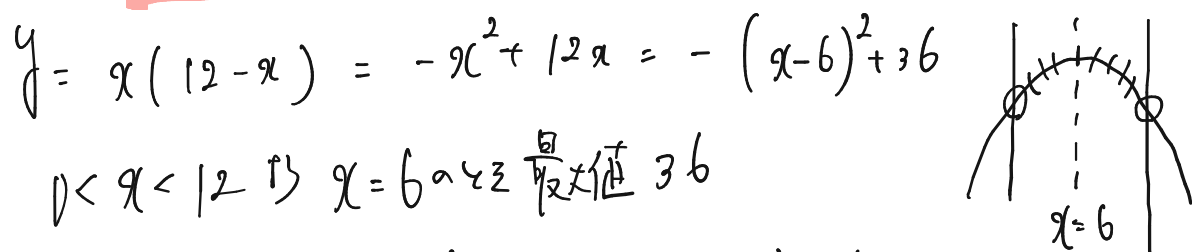 y = x(12-x) = -x²+12x = -(x-6)²+36
0<x<12より x=6のとき最大値36
x=6